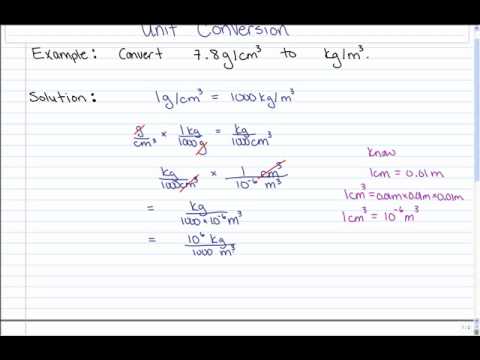 Unit Conversion
Example: Convert 7.8g/cm³ to kg/m³.
Solution: 1g/cm³ = 1000kg/m³
g/cm³ × 1kg/1000g = kg/1000cm³
kg/1000cm³ × 1 cm³/10⁻⁶ m³
= kg/1000×10⁻⁶m³
= 10⁶ kg/1000 m³
know
1cm = 0.01m
1cm³ = 0.01m×0.01m×0.01m
1cm³ = 10⁻⁶ m³